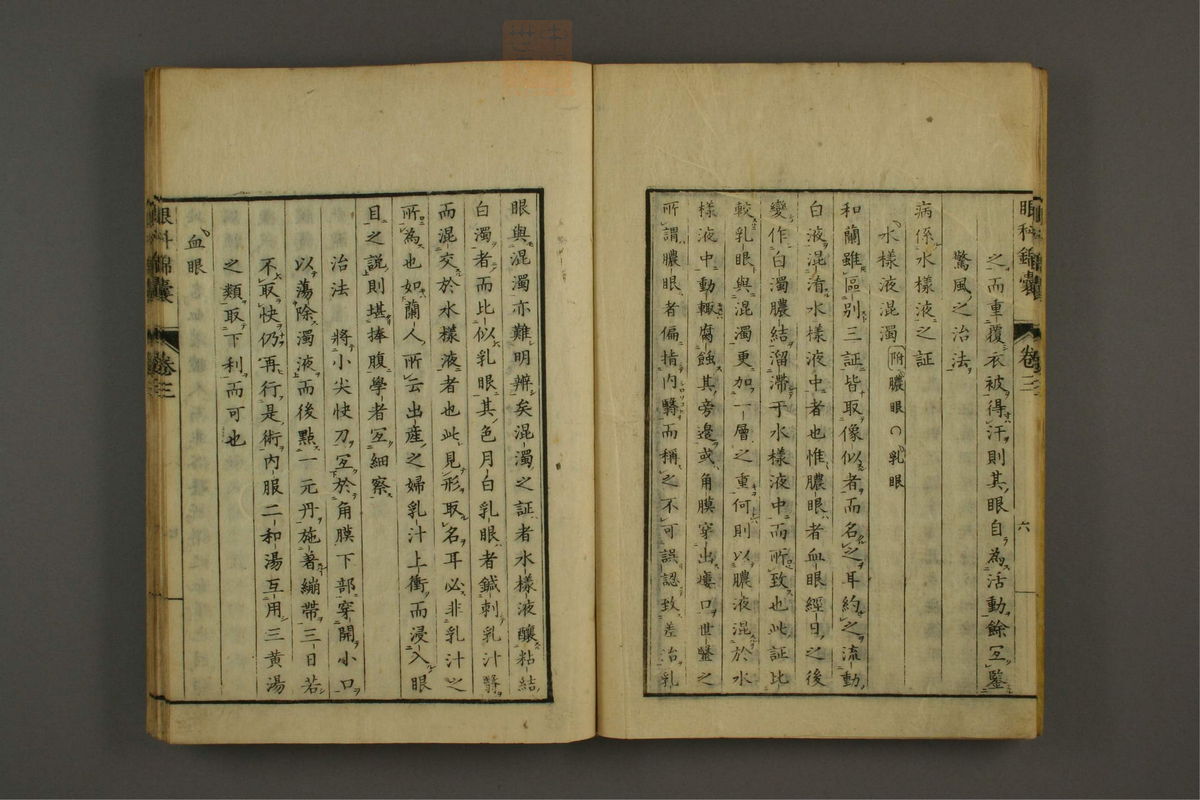 眼科錦囊 卷三 六
之而重覆衣被得汗則其眼自為活動餘宜鑒
驚風之治法
病係水樣液之証
水樣液混濁 附 膿眼 乳眼
和蘭雖區別三証皆取像似者而名之耳約之流動
白液混淆水樣液中者也惟膿眼者血眼經日之後
變作白濁膿結溜滯于水樣液中而所致也此証比
較乳眼與混濁更加一層之重何則以膿液混於水
樣液中動輙腐蝕其旁邊或角膜穿出瘻口世醫之
所謂膿眼者偏指內醫而稱之不可誤認致差治乳
眼與混濁亦難明辨矣混濁之証者水樣液釀粘結
白濁者而比似乳眼其色月白乳眼者鍼刺乳汁醬
而混交於水樣液者也此見形取名耳必非乳汁之
所為也如蘭人所云出產之婦乳汁上衝而浸入眼
目之說則堪捧腹學者宜細察
治法 將小尖快刀宜於角膜下部穿開小口
以蕩除濁液而後點一元丹施著繃帶三日若
不取快仍再行是術內服二和湯互用三黃湯
之類取下利而可也
血眼
眼科錦囊 卷三